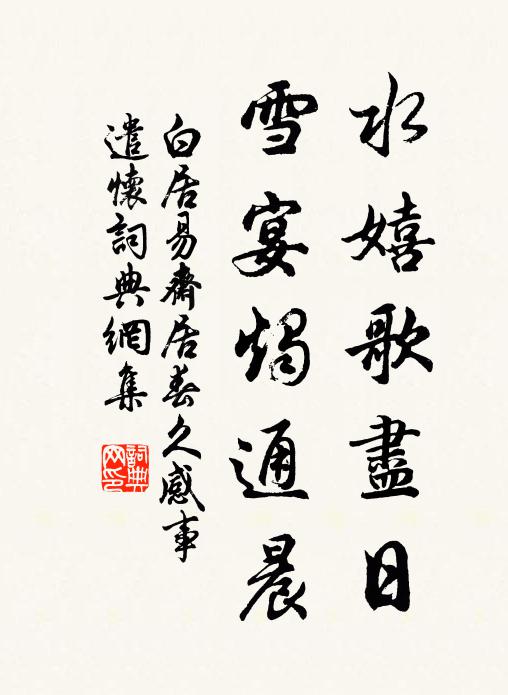 水嬉歌盡日
雪宴燭通晨
白居易齋居春久感事
遣懷詞典網集
詞典
网印